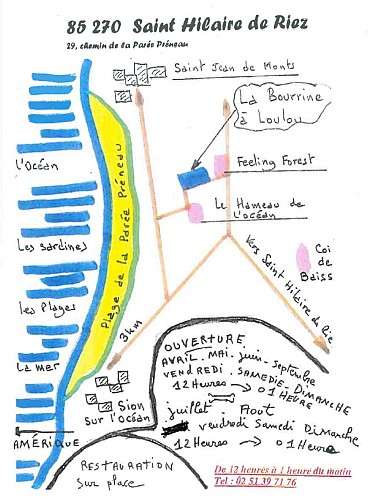 85 270 Saint Hilaire de Riez
29, chemin de la Parée Préneau
Saint Jean de Monts
La Bourrine
à Loulou
L'Océan
Feeling Forest
Le Hameau de
l'océan
Plage de la Parée Préneau
Les Sardines
Vers Saint Hilaire de Riez
Coi
de
Baiss
Les Plages
3 km
La mer
Sion
sur l'océan
AMÉRIQUE
OUVERTURE
AVRIL. MAI. juin. septembre
VENDREDI. SAMEDIE. DIMANCHE
12 Heures → 01 HEURE
juillet - Aout
vendredi Samedi Dimanche
12 Heures → 01 Heure
RESTAURATION
Sur place
De 12 heures à 1 heure du matin
Tel : 02 51 39 71 76